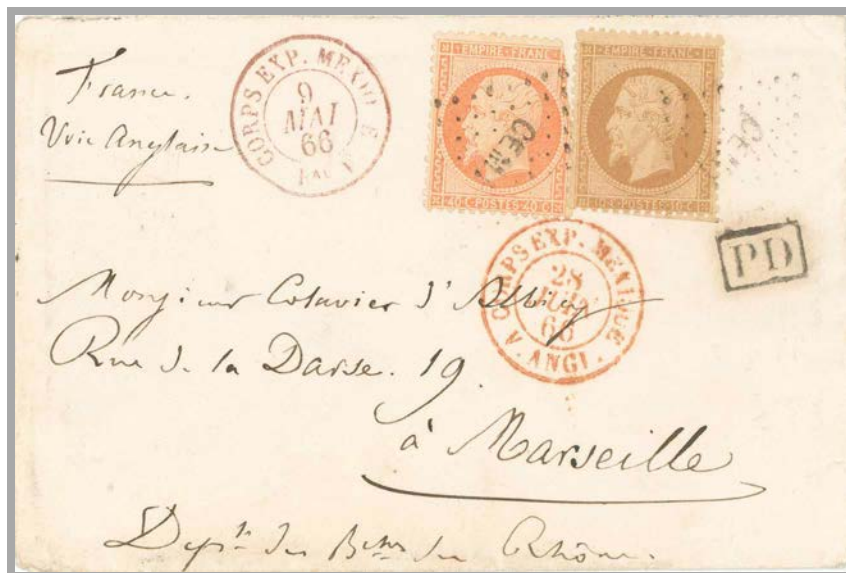 France.
Voie Anglaise
CORPS EXP. MEXIQ
9
MAI
66
EMPIRE FRANC
40 C POSTES 40 C
CEM
EMPIRE FRANC
10 C POSTES 10 C
PD
CORPS EXP. MEXIQUE
28
JUIN
66
V. ANGL.
Monsieur Colavier d'Albicy
Rue de la Darse. 19.
à Marseille
Dept. des Bches du Rhône.